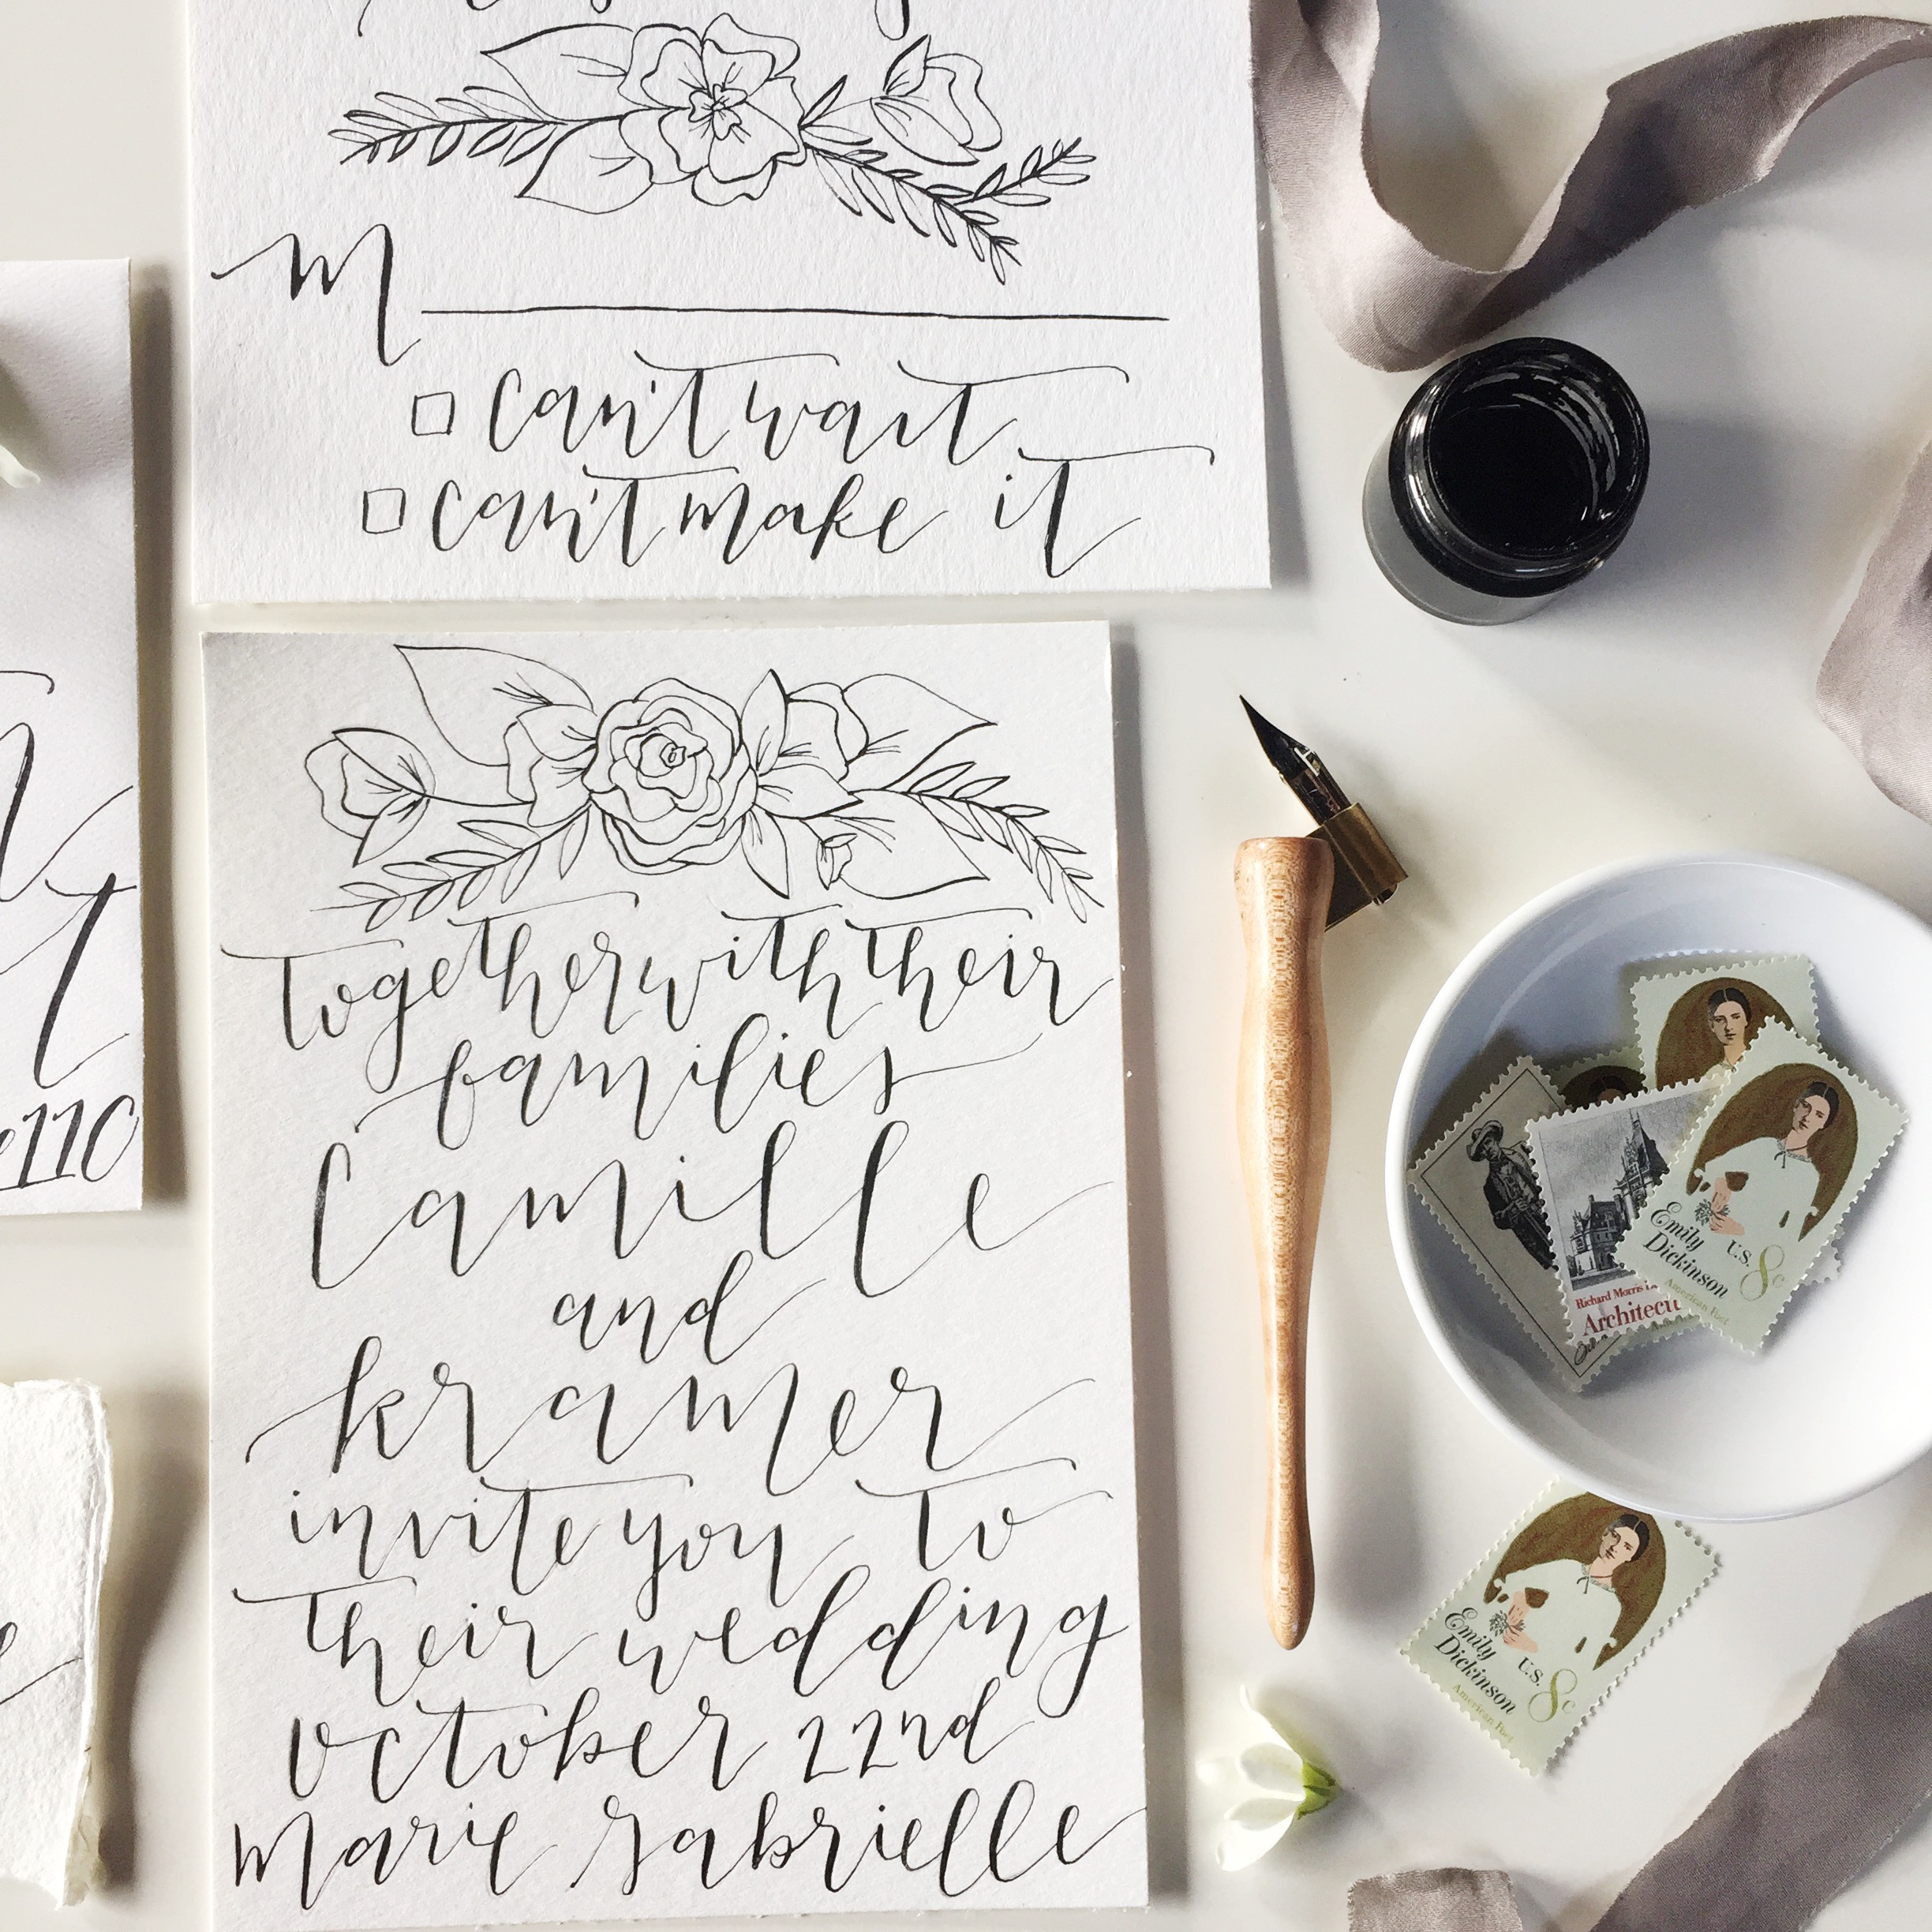 M
can't wait
can't make it
110
together with their
families
Camille
and
kramer
invite you to
their wedding
October 22nd
Marie Gabrielle
Richard Morris
Architectu
Emily
Dickinson
U.S. 8c
American Poet
Emily
Dickinson
U.S. 8c
American Poet